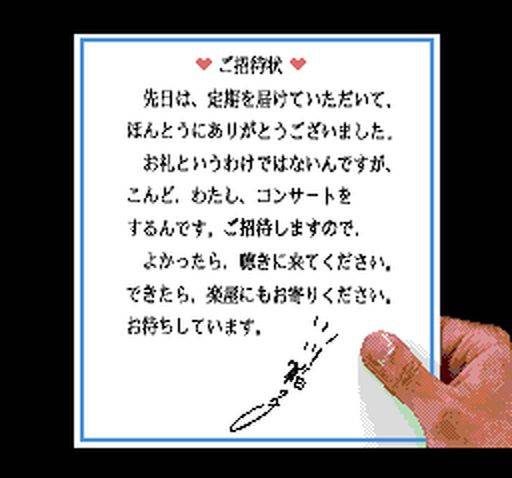 ♥ ご招待状 ♥
先日は、定期を届けていただいて、
ほんとうにありがとうございました。
お礼というわけではないんですが、
こんど、わたし、コンサートを
するんです。ご招待しますので、
よかったら、聴きに来てください。
できたら、楽屋にもお寄りください。
お待ちしています。